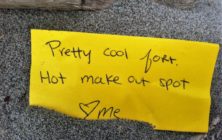 Pretty cool fort.
Hot make out spot
♡me